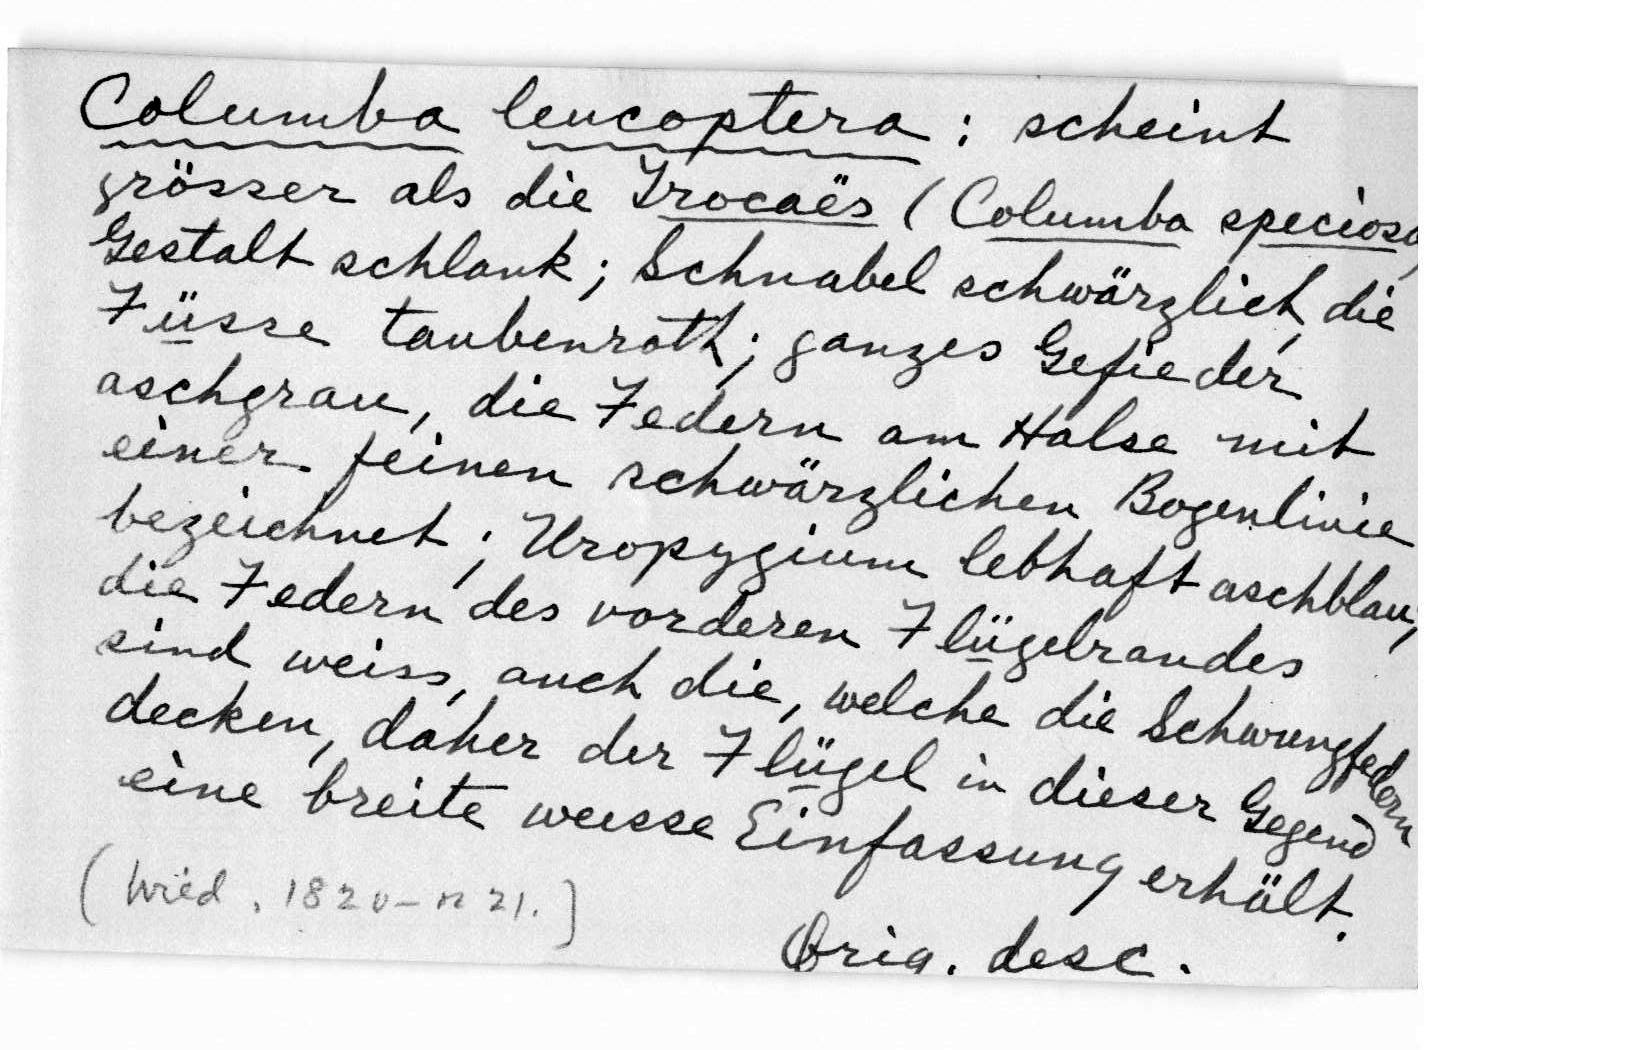 Columba leucoptera : scheint
grösser als die Trocaës (Columba speciosa,
Gestalt schlank; Schnabel schwärzlich, die
Füsse taubenroth; ganzes Gefieder
aschgrau, die Federn am Halse mit
einer feinen schwärzlichen Bogenlinie
bezeichnet; Uropygium lebhaft aschblau;
die Federn des vorderen Flügelrandes
sind weiss, auch die, welche die Schwungfedern
decken, daher der Flügel in dieser Gegend
eine breite weisse Einfassung erhält.
(Wied, 1820–n 21.)
Orig. desc.